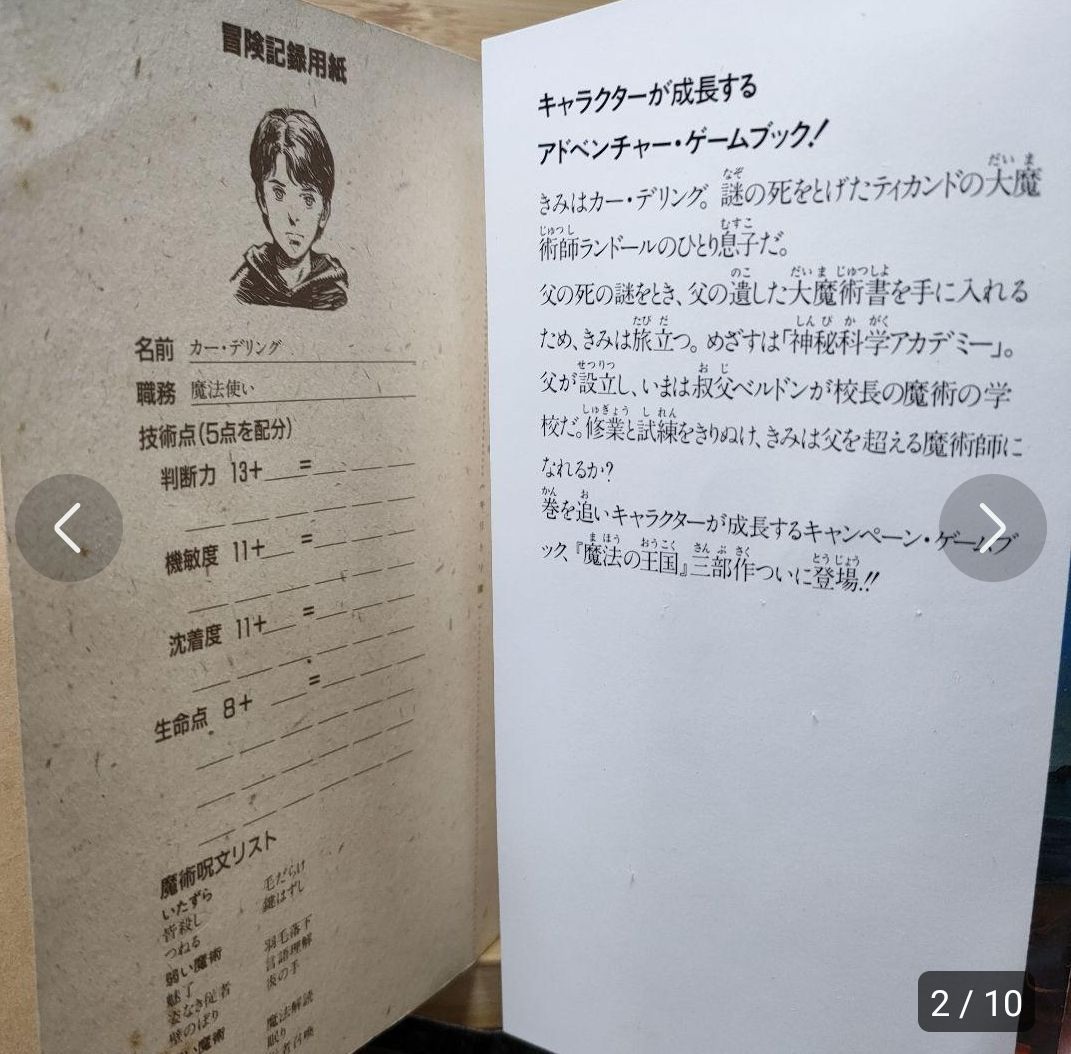 冒険記録用紙
名前 カー・デリング
職務 魔法使い
技術点(5点を配分)
判断力 13+__=
機敏度 11+__=
沈着度 11+__=
生命点 8+__=
魔術呪文リスト
いたずら 毛だらけ
皆殺し 鍵はずし
つねる
弱い魔術 羽毛落下
魅了 言語理解
姿なき従者 炎の手
壁のぼり
い魔術 魔法解読
眠り
キャラクターが成長する
アドベンチャー・ゲームブック!
きみはカー・デリング。謎の死をとげたティカンドの大魔
術師ランドールのひとり息子だ。
父の死の謎をとき、父の遺した大魔術書を手に入れる
ため、きみは旅立つ。めざすは「神秘科学アカデミー」。
父が設立し、いまは叔父ベルドンが校長の魔術の学
校だ。修業と試練をきりぬけ、きみは父を超える魔術師に
なれるか?
巻を追いキャラクターが成長するキャンペーン・ゲームブ
ック、『魔法の王国』三部作ついに登場!!
2 / 10